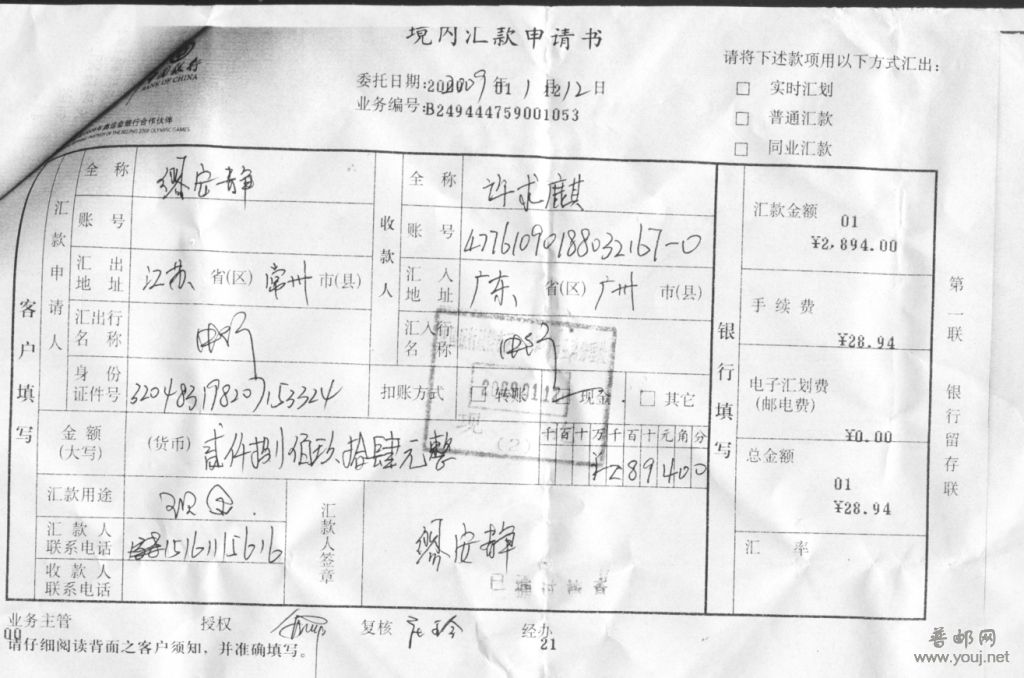 境内汇款申请书
BANK OF CHINA
委托日期:2009年 01 1月12日
业务编号:B249444759001053
请将下述款项用以下方式汇出:
□ 实时汇划
□ 普通汇款
□ 同业汇款
客户填写
汇款申请人
全称 缪安静
账号
汇出地址 江苏 省(区) 常州 市(县)
汇出行名称 中行
身份证件号 320483198207153324
收款人
全称 许求麒
账号 47761090188032167-0
汇入地址 广东 省(区) 广州 市(县)
汇入行名称 中行
扣账方式 □ 转账 现金 □ 其它
2009.01.12
现
(2)
金额(大写) (货币) 贰仟捌佰玖拾肆元整
千百十万千百十元角分
¥289400
汇款用途
汇款人联系电话 15161115616
收款人联系电话
汇款人签章 缪安静
银行填写
汇款金额 01
¥2,894.00
手续费
¥28.94
电子汇划费
(邮电费)
¥0.00
总金额
01
¥28.94
汇率
第一联 银行留存联
业务主管 授权 复核 经办
00 21
请仔细阅读背面之客户须知，并准确填写。
普邮网
www.youj.net